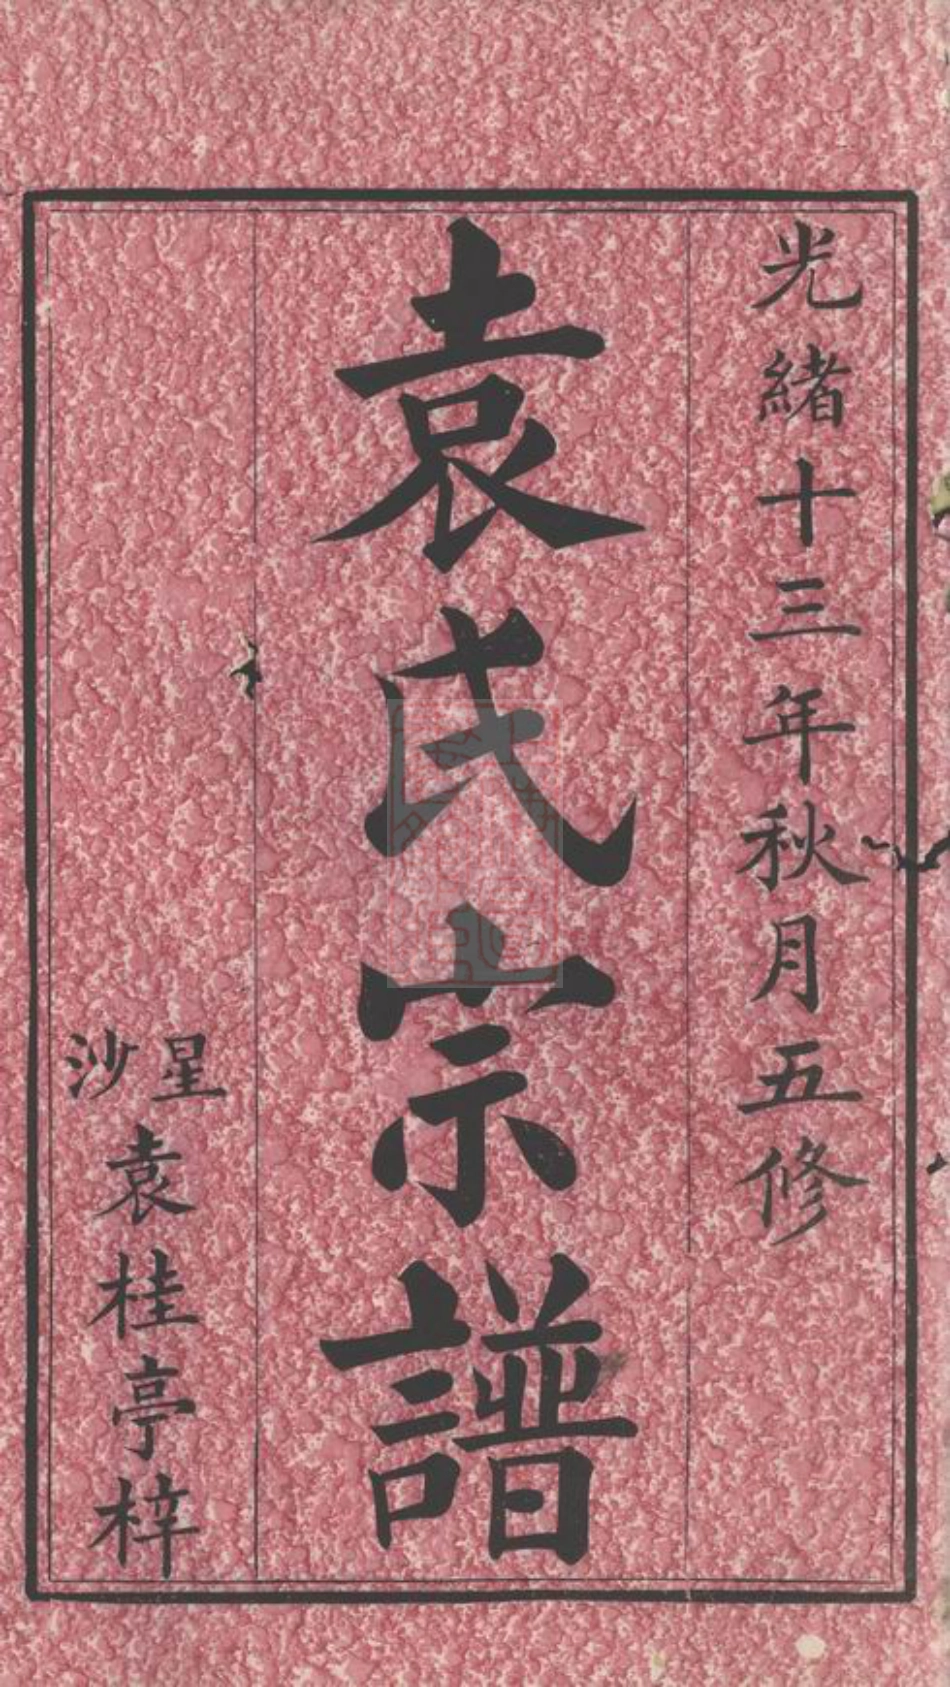 光緒十三年秋月五修
袁氏宗譜
星沙袁桂亭梓